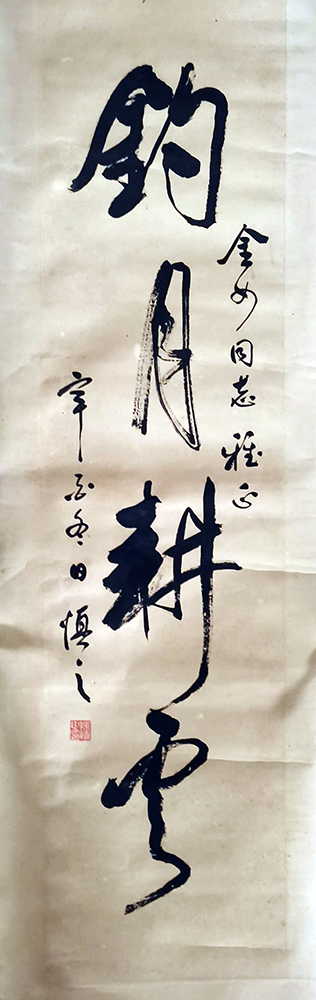 金如同志雅正
釣月耕云
辛酉冬日慎之